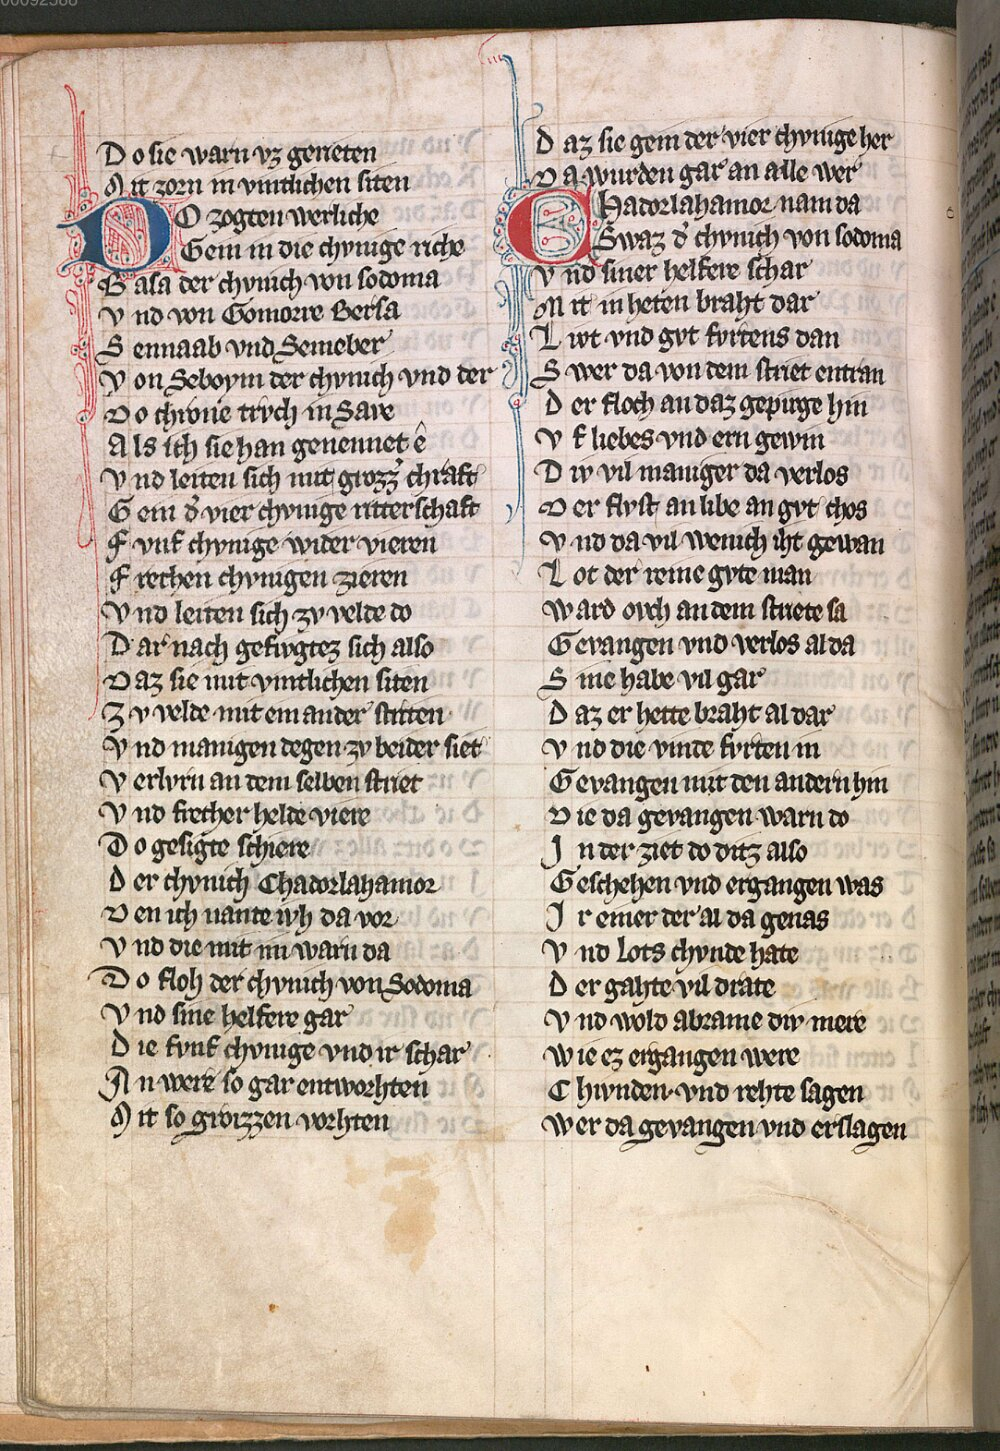 00092588
Do sie warn vz geneten
Mit zorn in vintlichen siten
DO zogten werliche
Gein in die chvnige riche
Basa der chvnich von sodoma
Vnd von Gomorre Bersa
Sennaab vnd Semeber
Von Seboym der chvnich vnd der
Do chrone trvch in Sare
Als ich sie han genennet ê
Vnd leiten sich mit grozz̾ chraft
Gein d̾ vier chvnige ritterschaft
Fvnf chvnige wider vieren
Frechen chvnigen zieren
Vnd leiten sich zv velde do
Dar nach gefvgtez sich also
Daz sie mit vintlichen siten
Zv velde mit ein ander stritten
Vnd manigen degen zv beider siet
Verlvrn an dem selben striet
Vnd frecher helde viere
Do gesigte schiere
Der chvnich Chadorlahamor
Den ich nante ivh da vor
Vnd die mit im warn da
Do floh der chvnich von Sodoma
Vnd sine helfere gar
Die fvnf chvnige vnd ir schar
An were so gar entworhten
Mit so groizzen vorhten
Daz sie gein der vier chvnige her
Da wurden gar an alle wer
CHadorlahamor nam da
Swaz d̾ chvnich von sodoma
Vnd siner helfere schar
Mit in heten braht dar
Livt vnd gvt fvrtens dan
Swer da von dem striet entran
Der floch an daz gepirge hin
Vf liebes vnd ern gewin
Div vil maniger da verlos
Der flvst an libe an gvt chos
Vnd da vil wenich iht gewan
Lot der reine gvte man
Ward ovch an dem striete sa
Gevangen vnd verlos al da
Sine habe vil gar
Daz er hette braht al dar
Vnd die vinde fvrten in
Gevangen mit den andern hin
Die da gevangen warn do
In der ziet do ditz also
Geschehen vnd ergangen was
Ir einer der al da genas
Vnd Lots chvnde hate
Der gahte vil drate
Vnd wold abrame div mere
Wie ez ergangen were
Chvnden vnd rehte sagen
Wer da gevangen vnd erslagen